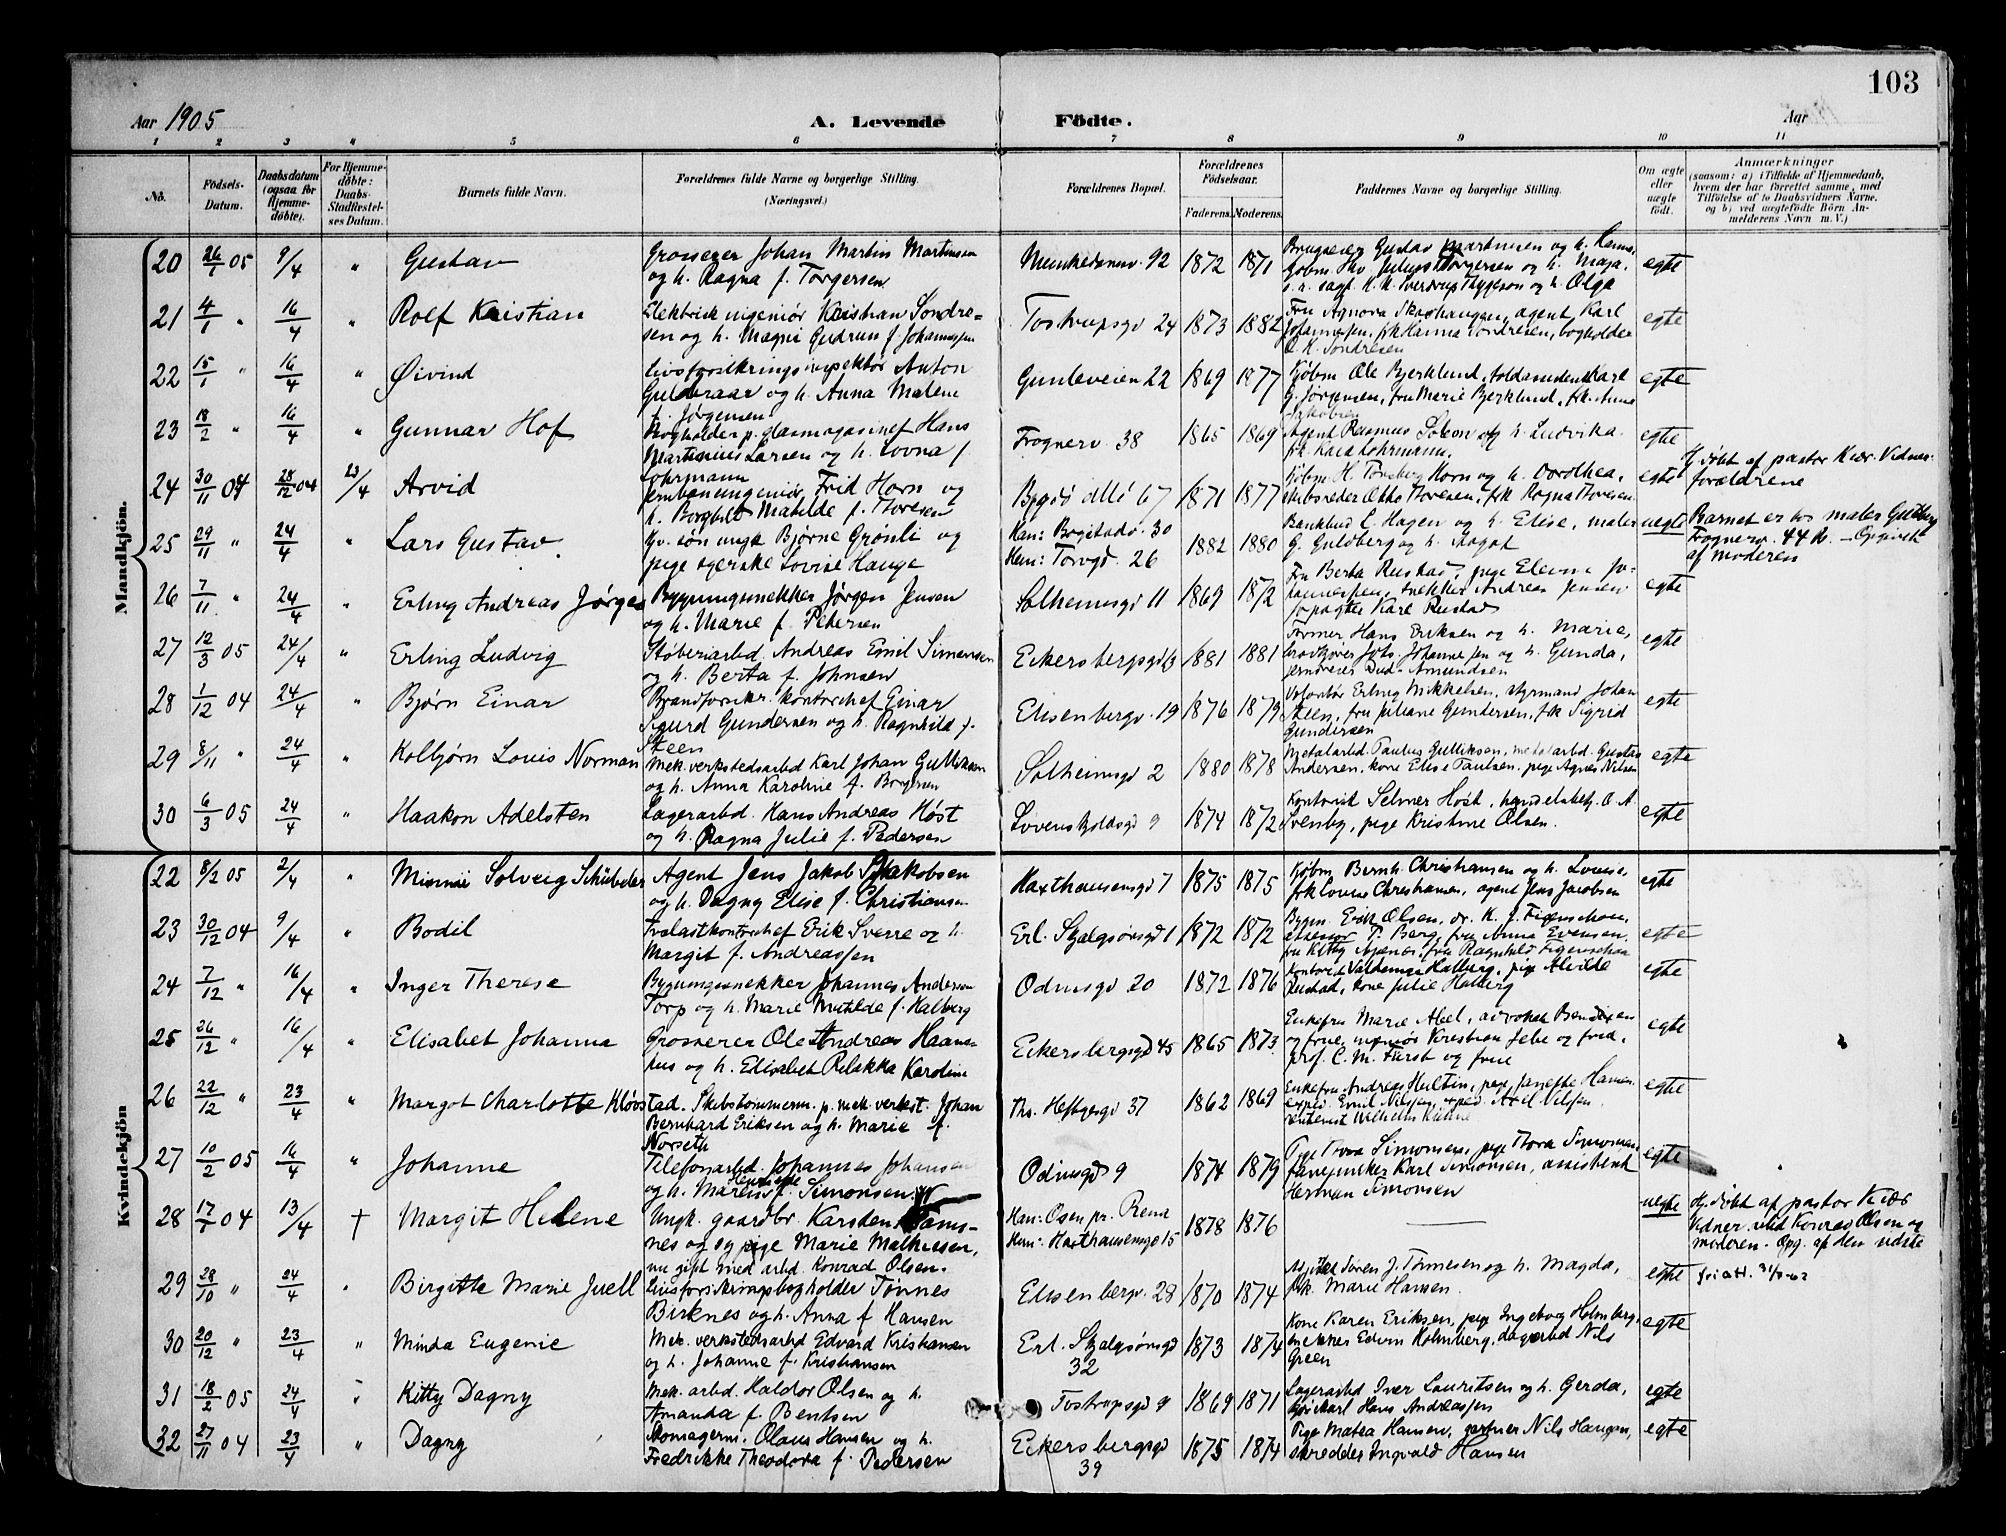 103
Aar 1905
A. Levende Födte.
Aar
1 2 3 4 5 6 7 8 9 10 11
No.
Födsels-Datum.
Daabsdatum (ogsaa for Hjemme-döbte).
For Hjemme-döbte: Daabs-Stadfestel-ses Datum.
Barnets fulde Navn.
Forældrenes fulde Navne og borgerlige Stilling. (Næringsvei.)
Forældrenes Bopæl.
Forældrenes Födselsaar.
Faderens. Moderens.
Faddernes Navne og borgerlige Stilling.
Om ægte eller uægte født.
Anmærkninger
(saasom: a) i Tilfælde af Hjemmedaab, hvem der har forrettet samme, med Tilföielse af to Daabsvidners Navne. og b) ved uægtefödte Börn An-melderens Navn m. V.)
Mandkjön.
20 26/1 05 9/4 " Gustav
Grosserer Johan Martin Martinsen
og h. Ragna f. Torgersen
Munkedamsv. 92 1872 1871
Brugseier Gustav Martinsen og h. Hanna
og h. Olga
egte
21 4/1 " 16/4 " Rolf Kristian
Elektrisk ingeniør Kristian Søndre-
sen og h. Magni Gudrun f. Johannessen
Tostrupsgd 24 1873 1882
agent Karl
Johannessen, frk Hanna Søndresen, bogholder
O. K. Søndresen
egte
22 15/1 " 16/4 " Øivind
Livsforsikringsinspektør Anton
Guldaar og h. Anna Malene
f. Jørgensen
Gimleveien 22 1869 1877
Kjøbm Ole Bjerklund, Karl
G. Jørgensen, fru Marie Bjerklund, frk. Anna
Jakobsen
egte
23 18/2 " 16/4 " Gunnar Hof
Bogholder p. glasmagasinet Hans
Martinius Larsen og h. Lovna f.
Lohrmann
Frognerv. 38 1865 1869
Agent Rasmus og h. Ludvika
egte
24 30/11 04 28/12 04 23/4 Arvid
Jernbaneingeniør Frid Horn og
h. Borghild Matilde f. Thoresen
Bygdø allé 67 1871 1877
Kjøbm. H. Horn og h. Dorothea,
skibsreder Otto Thoresen, frk Ragna Thoresen
egte
Hj. døbt af pastor Kiær. Vidner:
forældrene
25 29/11 " 24/4 " Lars Gustav
Gv. søn ungk Bjørne Grønli og
pige syerske Lovise Hauge
Han: Bogstadv. 30
Hun: Torvgd. 26 1882 1880
C. Hagen og h. Elise, maler
G. Guldberg og h. Magat
uegte
Barnet er hos maler Guldberg
Frognerv. 44 b. – Opgivet
af moderen
26 7/11 " 24/4 " Erling Andreas Jørgen
Bygningssnekker Jørgen Jensen
og h. Marie f. Pedersen
Solheimsgd 11 1869 1872
Fru Berta Rustad, pige Elevine Jo-
hannessen, snekker Andreas Jensen
forpagter Karl Rustad
egte
27 12/3 05 24/4 " Erling Ludvig
Støberiarbd. Andreas Emil Simensen
og h. Berta f. Johnsen
Eckersbergsgd 1881 1881
Former Hans Eriksen og h. Marie,
Johannessen og h. Gunda,
Amundsen
egte
28 1/12 04 24/4 " Bjørn Einar
Brandforsikr. kontorchef Einar
Sigurd Gundersen og h. Ragnhild f.
Steen
Elisenbergv. 19 1876 1879
Volontør Erling Mikkelsen, styrmand Johan
Steen, fru Juliane Gundersen, frk Sigrid
Gundersen
egte
29 8/11 " 24/4 " Kolbjørn Louis Norman
Mek. verkstedsarbd Karl Johan Gulliksen
og h. Anna Karoline f. Borgersen
Solheimsgd 2 1880 1878
Metalarbd. Paulus Gulliksen, metalarbd. Gustav
Andersen, kone Elise Paulsen, pige Agnes Nilsen
egte
30 6/3 05 24/4 " Haakon Adelsten
Lagerarbd. Hans Andreas Høst
og h. Ragna Julie f. Pedersen
Løvenskjoldsgd 9 1874 1872
Kontorist Selmer Høst, handelsbetj. O. A.
Svenby, pige Kristine Olsen.
egte
Kvindekjön
22 8/2 05 2/4 " Minnie Solveig Schübeler
Agent Jens Jakob Jakobsen
og h. Dagny Elise f. Christiansen
Haxthausensgd 7 1875 1875
Kjøbm Bernh. Christiansen og h. Louise,
frk Lovise Christiansen, agent Jens Jacobsen
egte
23 30/12 04 9/4 " Bodil
Erik Sverre og h.
Margit f. Andreassen
Erl. Skjalgsønsgd 1 1872 1872
Bygm. Erik Olsen, dr. K. J. Figenschau,
assessor P. Berg, fru Anna Evensen
fru Kitty fru Ragnhild Figenschau
egte
24 7/12 " 16/4 " Inger Therese
Bygningssnekker Johannes Anderson
Torp og h. Marie Matilde f. Halberg
Odinsgd 20 1872 1876
Kontorist Valdemar Halberg, pige Alvilde
Rustad, kone Julie Halberg
egte
25 26/12 " 16/4 " Elisabet Johanna
Grosserer Ole Andreas Haans-
hus og h. Elisabet Rebekka Karoline
Eckersbergsgd 45 1865 1873
Enkefru Marie Abel, advokat Bendixen
og frue, Kristian Jebe og frue,
prof. C. M. Fürst og frue
egte
26 22/12 " 23/4 " Margot Charlotte Kløvstad.
Skibstømmerm. p. mek. verkst. Johan
Bernhard Eriksen og h. Marie f.
Norseth
Ths. Heftyesgd 37 1862 1869
Enkefru Andrea Hultin, pige Janette Hansen
exped. Emil Nilssen, exped. Axel Nilssen
Wilhelm Kühne
egte
27 10/2 05 16/4 " Johanne
Telefonarbd. Johannes Johansen
og h. Maren Henriette f. Simonsen
Odinsgd 9 1874 1879
Pige Tora Simonsen, pige Thora Simonsen,
fanejunker Karl Simonsen, assistent
Herman Simonsen
egte
28 17/ 04 13/4 † Margit Helene
Ungk. gaardbr. Karsten
nes og pige Marie Mathiesen,
nu gift med arbd Konrad Olsen.
Han: Osen pr. Rena
Hun: Haxthausensgd 15 1878 1876
uegte
Hj. døbt af pastor Kiær
Vidner: arbd Konrad Olsen og
moderen. Opg. af den sidste
29 28/10 " 24/4 " Birgitte Marie Juell
Livsforsikringsbogholder Tønnes
Birknes og h. Anna f Hansen
Elisenbergv. 28 1870 1874
Søren J. Tønnesen og h. Magda,
frk. Marie Hansen.
egte
30 20/12 " 23/4 " Minda Eugenie
Mek. verkstedsarbd Edvard Kristiansen
og h. Johanne f. Kristiansen
Erl. Skjalgsønsgd
32
1873 1874
Kone Karen Eriksen, pige Ingeborg Holmberg,
snekker Edvin Holmberg, dagarbd Nils
Green
egte
31 18/2 05 24/4 " Kitty Dagny
Mek. arbd. Haldor Olsen og h.
Amanda f. Bentsen
Tostrupsgd 9 1869 1871
Lagerarbd Iver Lauritsen og h. Gerda,
Hans Andreassen
egte
32 27/11 04 23/4 " Dagny
Skomagerm. Olaus Hansen og h.
Fredrikke Theodora f. Pedersen
Eckersbergsgd
39
1875 1874
Pige Matea Hansen, gartner Nils Haugen,
skredder Ingvald Hansen
egte